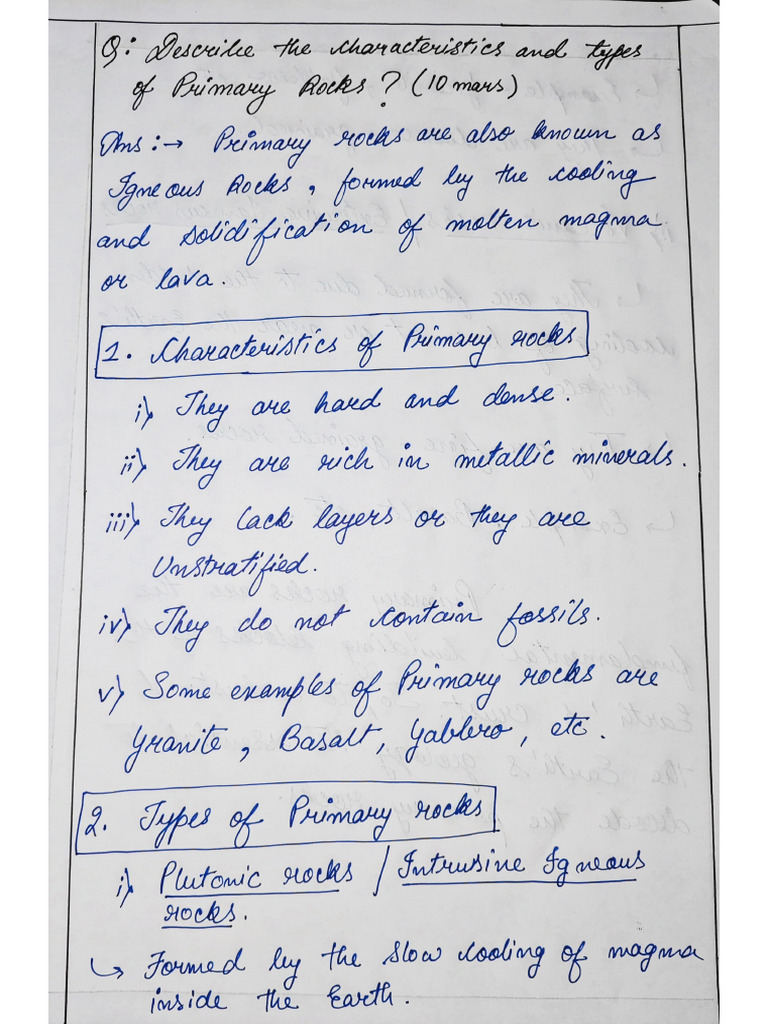 Q: Describe the characteristics and types
of Primary Rocks? (10 mars)
Ans :→ Primary rocks are also known as
Igneous Rocks, formed by the cooling
and solidification of molten magma
or lava.
1. Characteristics of Primary rocks
i) They are hard and dense.
ii) They are rich in metallic minerals.
iii) They lack layers or they are
Unstratified.
iv) They do not contain fossils.
v) Some examples of Primary rocks are
Granite, Basalt, Gabbro, etc.
2. Types of Primary rocks
i) Plutonic rocks / Intrusine Igneous
rocks.
↳ Formed by the slow cooling of magma
inside the Earth.